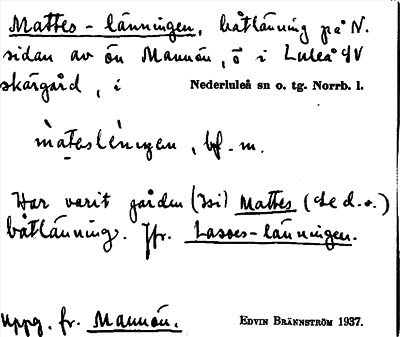 Mattes-länningen, båtlänning på N.
sidan av ön Mannön, ö i Luleå
skärgård, i Nederluleå sn o. tg. Norrb. l.
màteslèningen, bf. m.
Har varit gården Mattes (se d. o.)
båtlänning. Jfr. Lasses-länningen.
Uppg. fr. Mannön. EDVIN BRÄNNSTRÖM 1937.